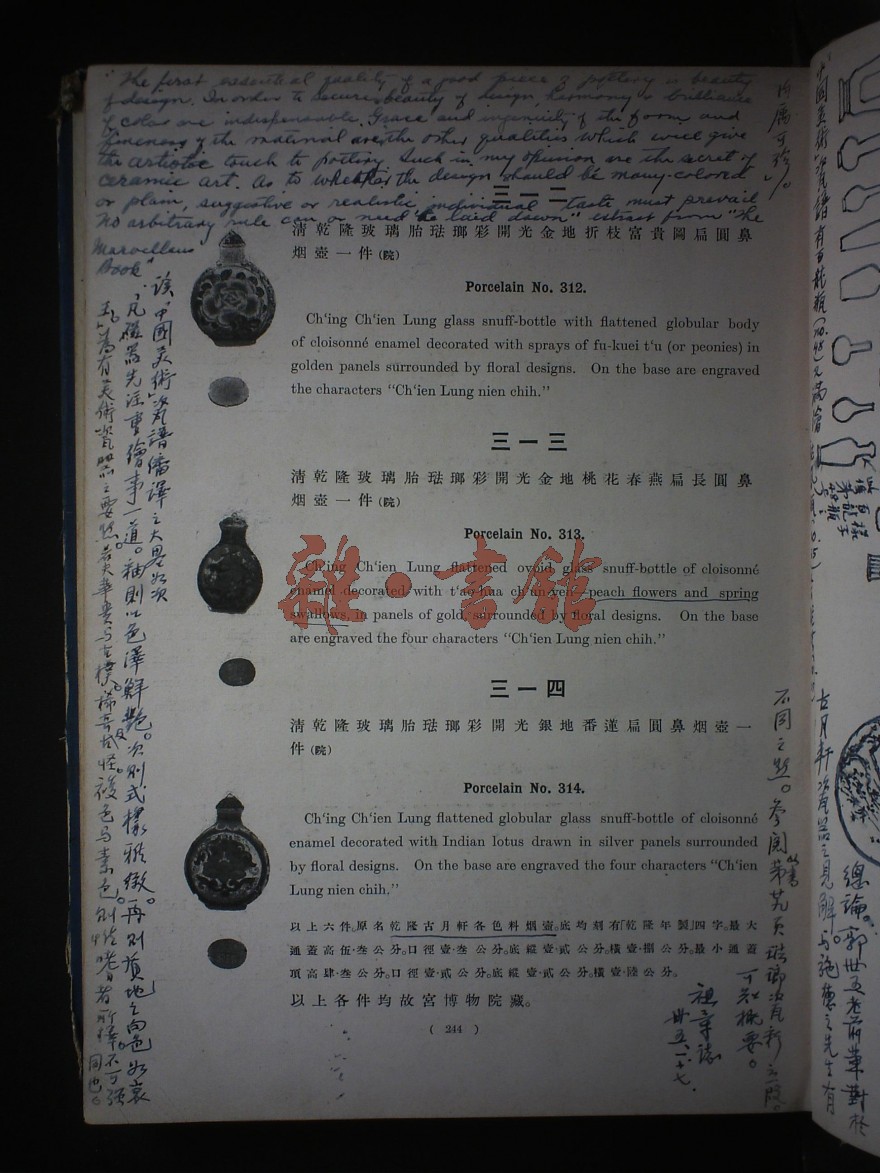 The first essential quality of a good piece of pottery is beauty
of design. In order to secure beauty of design, harmony & brilliance
of color are indispensable. Grace and ingenuity of the form and
fineness of the material are the other qualities which will give
the artistic touch to pottery. Such in my opinion are the secret of
ceramic art. As to whether the design should be many-colored
or plain, suggestive or realistic individual taste must prevail
No arbitrary rule can or need be laid down" extract from "The
Marvellous
Book"
三一二
清乾隆玻璃胎琺瑯彩開光金地折枝富貴圖扁圓鼻
烟壺一件(院)
Porcelain No. 312.
Ch'ing Ch'ien Lung glass snuff-bottle with flattened globular body
of cloisonné enamel decorated with sprays of fu-kuei t'u (or peonies) in
golden panels surrounded by floral designs. On the base are engraved
the characters "Ch'ien Lung nien chih."
三一三
清乾隆玻璃胎琺瑯彩開光金地桃花春燕扁長圓鼻
烟壺一件(院)
Porcelain No. 313.
Ch'ing Ch'ien Lung flattened ovoid glass snuff-bottle of cloisonné
enamel decorated with t'ao hua ch'un yen, peach flowers and spring
swallows, in panels of gold, surrounded by floral designs. On the base
are engraved the four characters "Ch'ien Lung nien chih."
雜·書館
三一四
清乾隆玻璃胎琺瑯彩開光銀地番蓮扁圓鼻烟壺一
件(院)
Porcelain No. 314.
Ch'ing Ch'ien Lung flattened globular glass snuff-bottle of cloisonné
enamel decorated with Indian lotus drawn in silver panels surrounded
by floral designs. On the base are engraved the four characters "Ch'ien
Lung nien chih."
以上六件。原名乾隆古月軒各色料烟壺。底均刻有「乾隆年製」四字。最大
通蓋高伍·叁公分。口徑壹·叁公分。底縱壹·貳公分。橫壹·捌公分。最小通蓋
項高肆·叁公分。口徑壹·貳公分。底縱壹·貳公分。橫壹·陸公分。
以上各件均故宮博物院藏。
( 244 )
該"中國美術瓷譜"繙譯之大畧如次
"凡磁器先注重繪事一道。釉則以色澤鮮艷。次則式樣雅緻。再則質地之
不同之點。參閱
可知概要。
祖章誌
卅五、一、十七、
中國美術瓷譜有百龍瓶
總論。郭世五老前輩對於
古月軒瓷器之見解。与施德之先生有